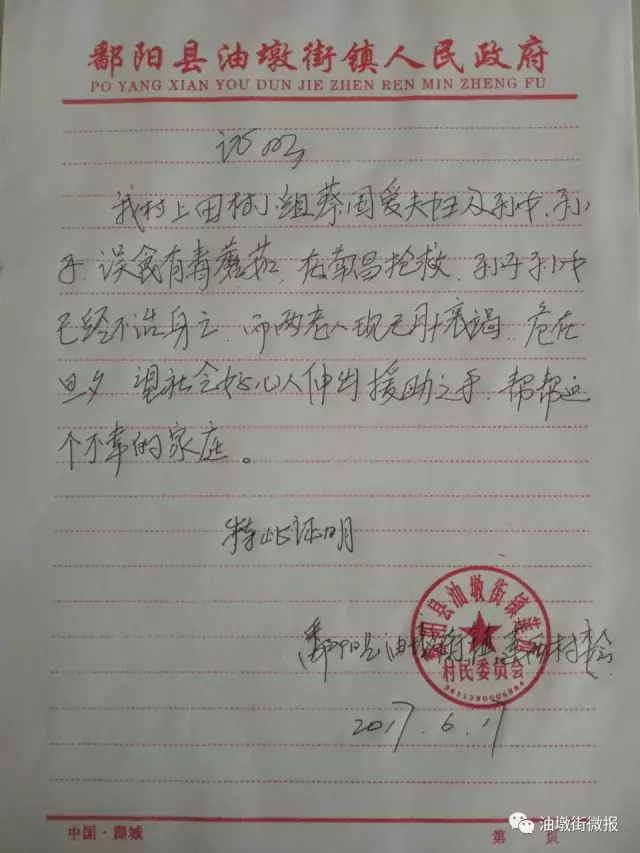 鄱阳县油墩街镇人民政府
PO YANG XIAN YOU DUN JIE ZHEN REN MIN ZHENG FU
证明
我村上田村小组蔡国爱夫妇及孙女、孙
子误食有毒蘑菇，在南昌抢救，孙子孙女
已经不治身亡，而两老人现已肝衰竭，危在
旦夕，望社会好心人伸出援助之手，帮帮这
个不幸的家庭。
特此证明
鄱阳县油墩街镇 村委会
鄱阳县油墩街镇
村民委员会
2017.6.17
中国·鄱城
第 页
油墩街微报